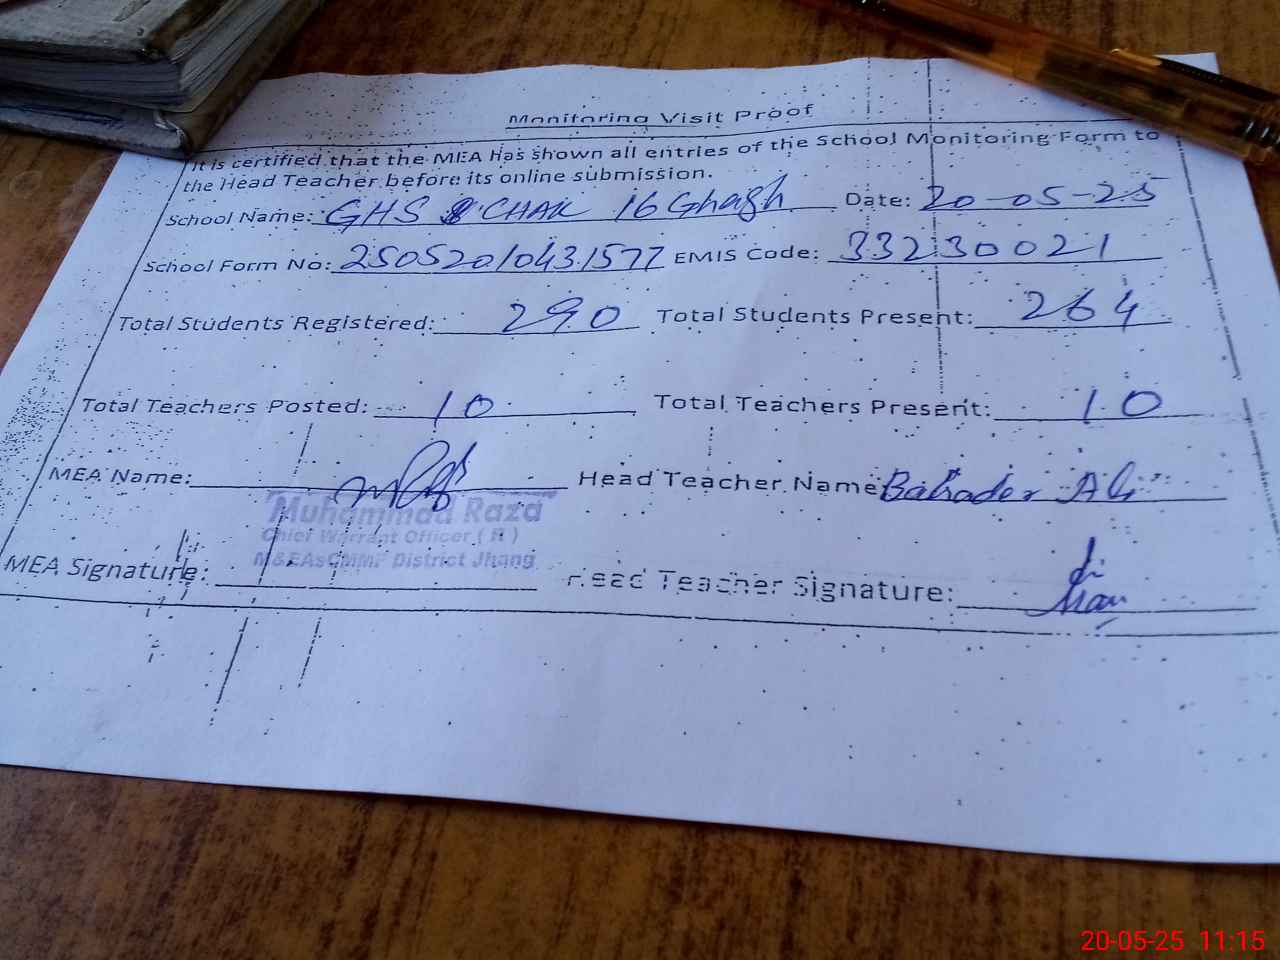 Monitoring Visit Proof
It is certified that the MEA has shown all entries of the School Monitoring Form to
the Head Teacher before its online submission.
School Name: GHS CHAK 16 Ghagh Date: 20-05-25
School Form No: 25052010431577 EMIS Code: 33230021
Total Students Registered: 290 Total Students Present: 264
Total Teachers Posted: 10 Total Teachers Present: 10
MEA Name: Head Teacher Name Bahader Ali
Muhammad Raza
Chief Warrant Officer ( R )
M&EAsCMMF District Jhang
MEA Signature: Head Teacher Signature:
20-05-25 11:15